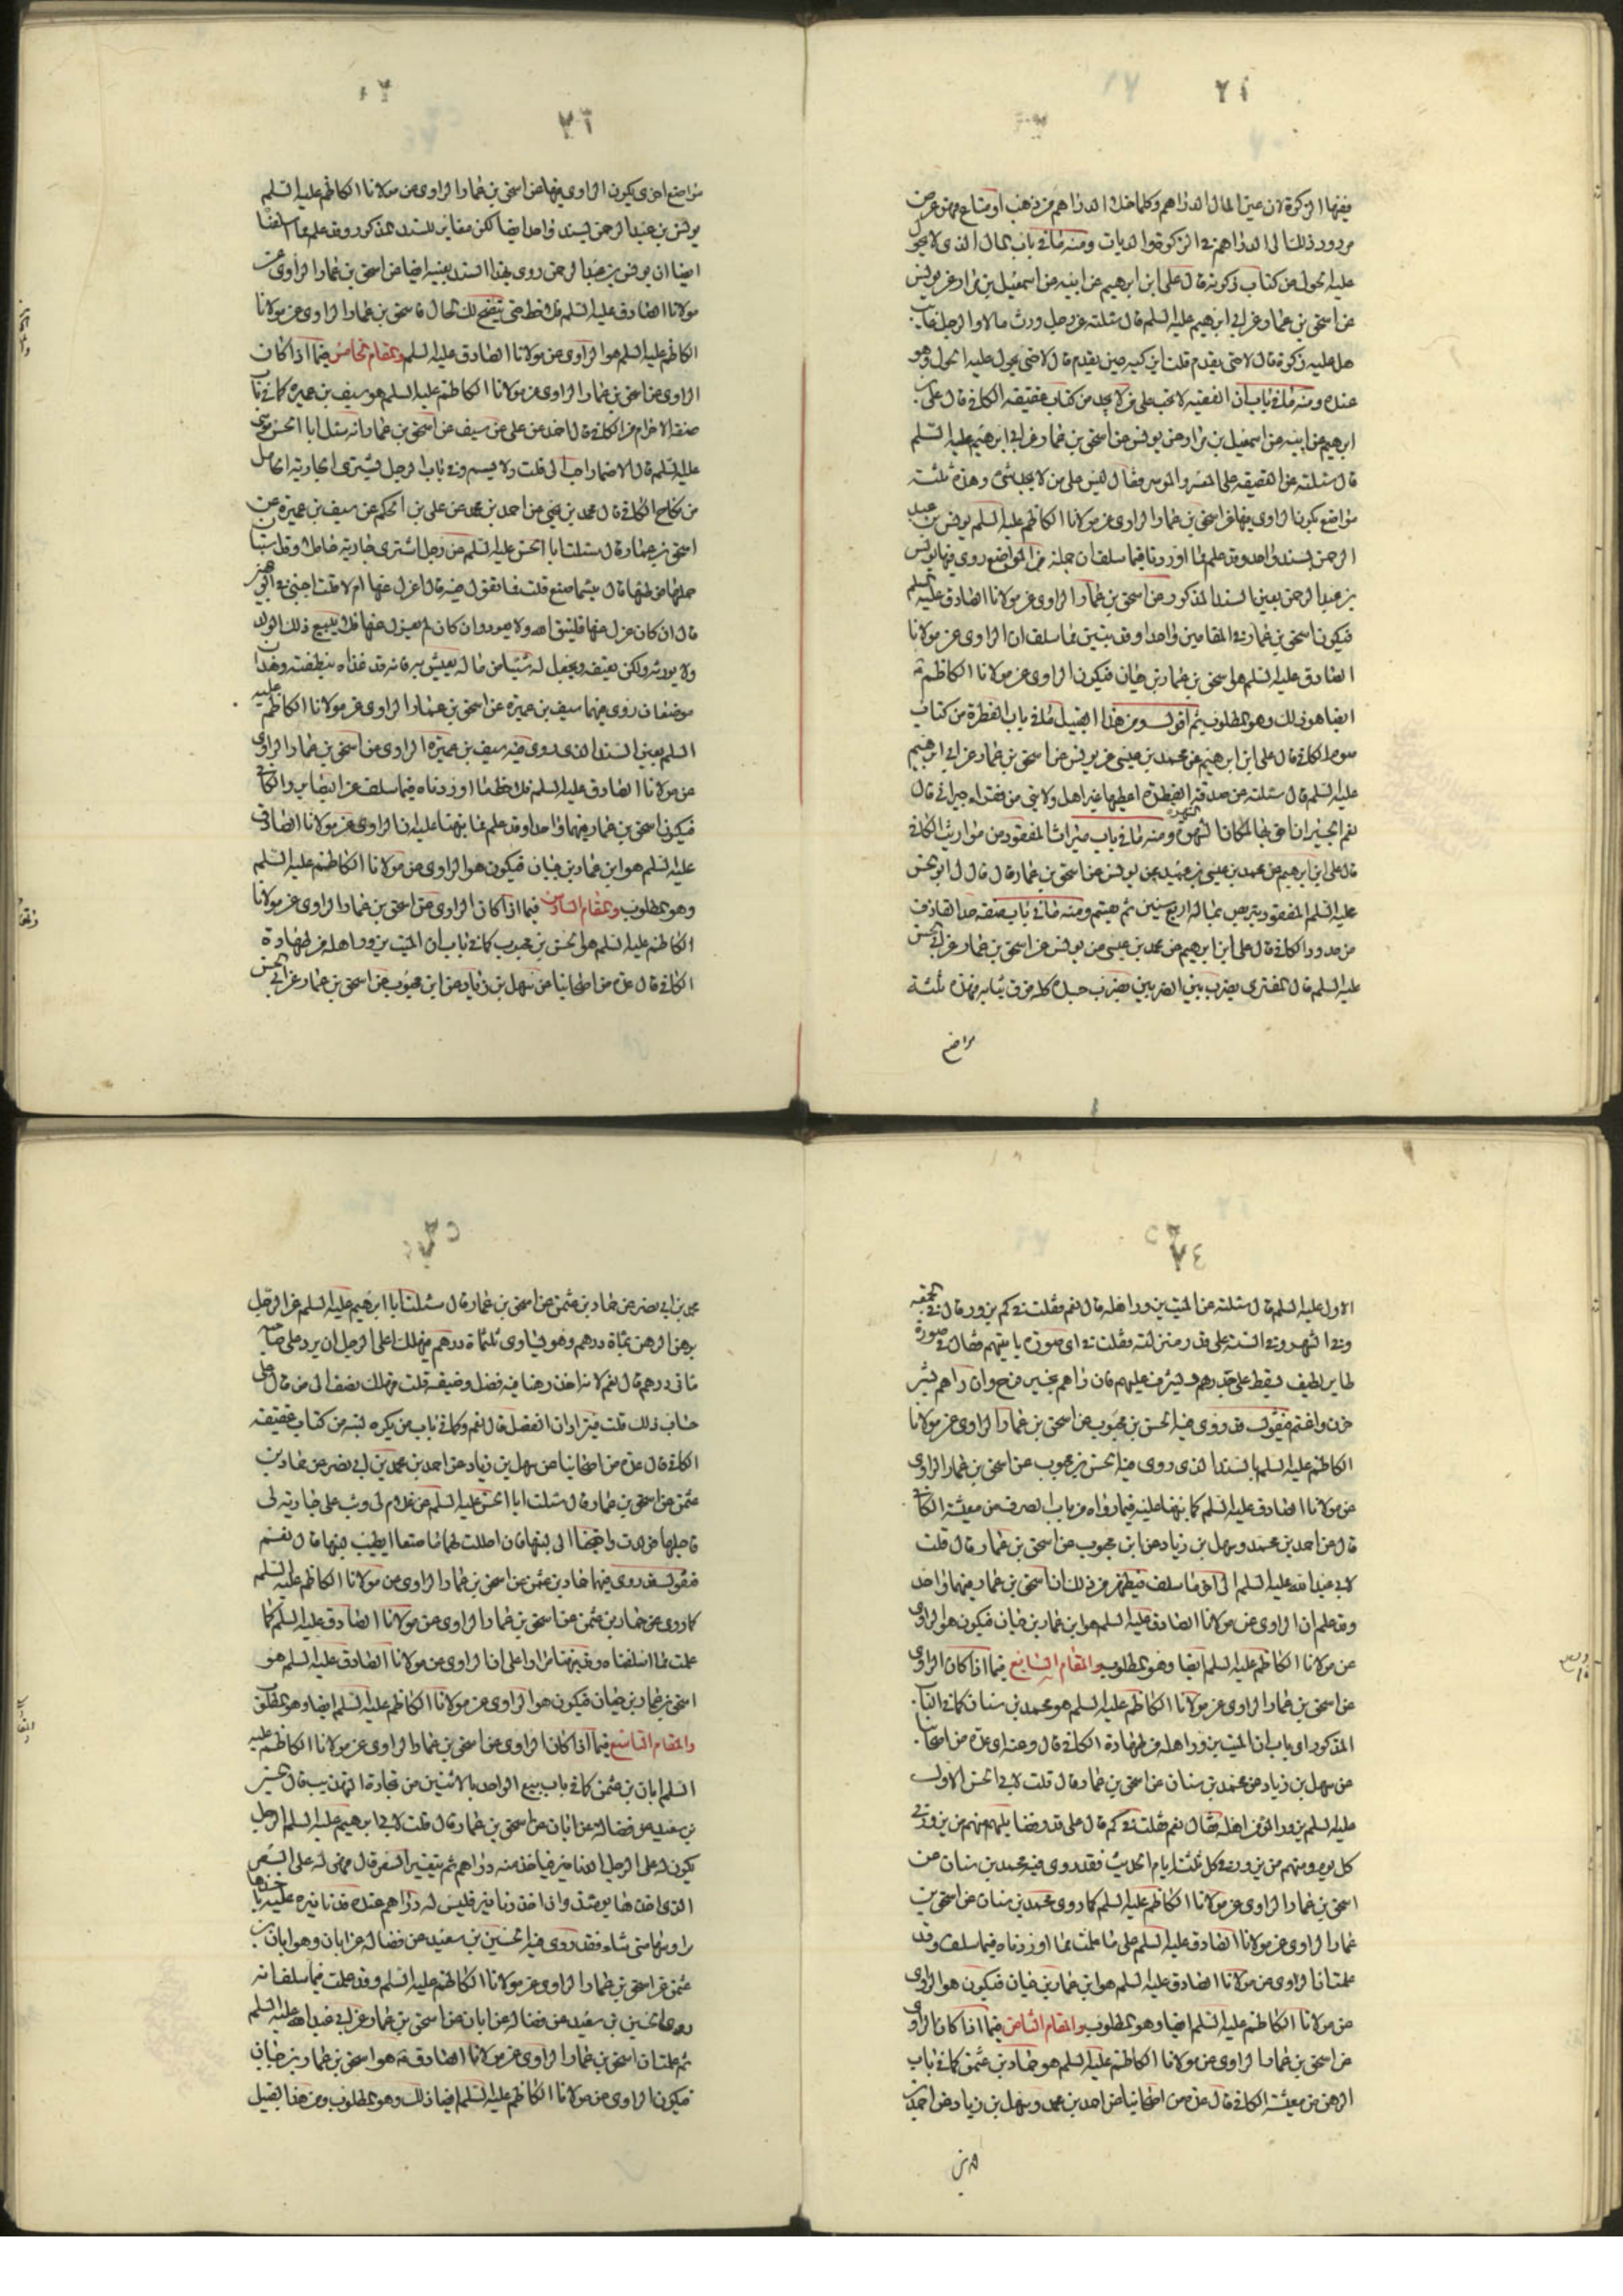 فيها الزكوة لان عين المال الدراهم وكلما خلا الدراهم من ذهب او متاع فهو عرض
مردود ذلك الى الدراهم في الزكوة والديات ومنه ما في باب المال الذي لا يحول
عليه الحول من كتاب زكوته قال علي ابن ابرهيم عن ابيه عن اسمعيل بن مرار عن يونس
عن اسحق بن عمار عن ابي ابرهيم عليه السلم قال سئلته عن رجل ورث مالا والرجل غائب
هل عليه زكوة قال لا حتى يقدم قلت ايزكيه حين يقدم قال لا حتى يحول عليه الحول وهو
عنده ومنه ما في باب ان العقيقة لا تجب على من لا يجد من كتاب عقيقة الكافي قال علي بن
ابرهيم عن ابيه عن اسمعيل بن مرار عن يونس عن اسحق بن عمار عن ابي ابرهيم عليه السلم
قال سئلته عن العقيقة على المعسر والموسر فقال ليس على من لا يجد شئ وهذه ثلثة
مواضع يكون الراوي فيها عن اسحق بن عمار الراوي عن مولانا الكاظم عليه السلم يونس بن عبد
الرحمن بسند واحد وقد علم مما اوردنا فيما سلف ان جملة من المواضع روى فيها يونس
بن عبد الرحمن بعين السند المذكور عن اسحق بن عمار الراوي عن مولانا الصادق عليه السلم
فيكون اسحق بن عمار في المقامين واحدا وقد تبين مما سلف ان الراوي عن مولانا
الصادق عليه السلم هو اسحق بن عمار بن حيان فيكون الراوي عن مولانا الكاظم ع
ايضا هو ذلك وهو المطلوب ثم اقول ومن هذا القبيل ما في باب الفطرة من كتاب
صوم الكافي قال علي ابن ابرهيم عن محمد بن عيسى عن يونس عن اسحق بن عمار عن ابي ابرهيم
عليه السلم قال سئلته عن صدقة الفطرة اعطيها غير اهل ولايتي من فقراء جيراني قال
نعم الجيران احق بها لمكان الشهرة ومنه ما في باب ميراث المفقود من مواريث الكافي
قال علي ابن ابرهيم عن محمد بن عيسى بن عبيد عن يونس عن اسحق بن عمار قال قال لي ابو الحسن
عليه السلم المفقود يتربص بماله اربع سنين ثم يقسم ومنه ما في باب صفة حد القاذف
من حدود الكافي قال علي ابن ابرهيم عن محمد بن عيسى عن يونس عن اسحق بن عمار عن ابي الحسن
عليه السلم قال المفترى يضرب بين الضربين يضرب جسده كله فوق ثيابه فهذه ثلثة
مواضع
مواضع اخرى يكون الراوي فيها عن اسحق بن عمار الراوي عن مولانا الكاظم عليه السلم
يونس بن عبد الرحمن بسند واحد ايضا لكن مغاير للسند المذكور وقد علم مما اسلفنا
ايضا ان يونس بن عبد الرحمن روى بهذا السند بعينه ايضا عن اسحق بن عمار الراوي عن
مولانا الصادق عليه السلم فلاحظ حتى يتضح لك الحال فاسحق بن عمار الراوي عن مولانا
الكاظم عليه السلم هو الراوي عن مولانا الصادق عليه السلم والمقام الخامس فيما اذا كان
الراوي عن اسحق بن عمار الراوي عن مولانا الكاظم عليه السلم هو سيف بن عميرة كما في باب
صفة الاحرام من الكافي قال احمد عن علي عن سيف عن اسحق بن عمار انه سئل ابا الحسن موسى
عليه السلم قال الاضمار احب الى قلت ولا يسم وفي باب الرجل يشترى الجارية الحامل
من نكاح الكافي قال محمد بن يحيى عن احمد بن محمد عن علي بن الحكم عن سيف بن عميرة عن
اسحق بن عمار قال سئلت ابا الحسن عليه السلم عن رجل اشترى جارية حاملا وقد استبان
حملها فوطئها قال بئسما صنع قلت فما تقول فيه قال اعزل عنها ام لا قلت اجبني في الوجهين
قال ان كان عزل عنها فليتق الله ولا يعود وان كان لم يعزل عنها فلا يبيع ذلك الولد
ولا يورثه ولكن يعتقه ويجعل له شيئا من ماله يعيش به فانه قد غذاه بنطفته وهذان
موضعان روى فيهما سيف بن عميرة عن اسحق بن عمار الراوي عن مولانا الكاظم عليه
السلم بعين السند الذي روى فيه سيف بن عميرة الراوي عن اسحق بن عمار الراوي
عن مولانا الصادق عليه السلم فلاحظ ما اوردناه فيما سلف عن التهذيب والكافي
فيكون اسحق بن عمار فيهما واحدا وقد علم مما نبهنا عليه ان الراوي عن مولانا الصادق
عليه السلم هو ابن عمار بن حيان فيكون هو الراوي عن مولانا الكاظم عليه السلم
وهو المطلوب والمقام السادس فيما اذا كان الراوي عن اسحق بن عمار الراوي عن مولانا
الكاظم عليه السلم هو الحسن بن محبوب كما في باب ان الميت يزور اهله من طهارة
الكافي قال عدة من اصحابنا عن سهل بن زياد عن ابن محبوب عن اسحق بن عمار عن ابي الحسن
الاول عليه السلم قال سئلته عن الميت يزور اهله قال نعم فقلت في كم يزور قال في الجمعة
وفي الشهر وفي السنة على قدر منزلته فقلت في اي صورة ياتيهم فقال في صورة
طاير لطيف يسقط على جدرهم ويشرف عليهم فان راهم بخير فرح وان راهم بشر
حزن واغتم فنقول قد روى فيه الحسن بن محبوب عن اسحق بن عمار الراوي عن مولانا
الكاظم عليه السلم بالسند الذي روى فيه الحسن بن محبوب عن اسحق بن عمار الراوي
عن مولانا الصادق عليه السلم كما نبهنا عليه فيما رواه في باب الصرف من معيشة الكافي
قال عن احمد بن محمد وسهل بن زياد عن ابن محبوب عن اسحق بن عمار قال قلت
لابي عبد الله عليه السلم الى اخر ما سلف فيظهر من ذلك ان اسحق بن عمار فيهما واحد
وقد علم ان الراوي عن مولانا الصادق عليه السلم هو ابن عمار بن حيان فيكون هو الراوي
عن مولانا الكاظم عليه السلم ايضا وهو المطلوب والمقام السابع فيما اذا كان الراوي
عن اسحق بن عمار الراوي عن مولانا الكاظم عليه السلم هو محمد بن سنان كما في الباب
المذكور اي باب ان الميت يزور اهله من طهارة الكافي قال وعنه اي عدة من اصحابنا
عن سهل بن زياد عن محمد بن سنان عن اسحق بن عمار قال قلت لابي الحسن الاول
عليه السلم يزور المؤمن اهله فقال نعم فقلت في كم قال على قدر فضايلهم منهم من يزور في
كل يوم ومنهم من يزور في كل ثلثة ايام الحديث فقد روى فيه محمد بن سنان عن
اسحق بن عمار الراوي عن مولانا الكاظم عليه السلم كما روى محمد بن سنان عن اسحق بن
عمار الراوي عن مولانا الصادق عليه السلم على ما علمت مما اوردناه فيما سلف وقد
علمت ان الراوي عن مولانا الصادق عليه السلم هو ابن عمار بن حيان فيكون هو الراوي
عن مولانا الكاظم عليه السلم ايضا وهو المطلوب والمقام الثامن فيما اذا كان الراوي
عن اسحق بن عمار الراوي عن مولانا الكاظم عليه السلم هو حماد بن عثمن كما في باب
الرهن من معيشة الكافي قال عدة من اصحابنا عن احمد بن محمد وسهل بن زياد عن احمد بن
محمد بن ابي نصر عن حماد بن عثمن عن اسحق بن عمار قال سئلت ابا ابرهيم عليه السلم عن الرجل
يرهن الرهن بماة درهم وهو يساوي ثلثماة درهم فيهلك اعلى الرجل ان يرد على صاحبه
ماتي درهم قال نعم لانه اخذ رهنا فيه فضل وضيعه قلت فهلك نصف الرهن قال على
حساب ذلك قلت فيترادان الفضل قال نعم وكما في باب من يكره لبنه من كتاب عقيقة
الكافي قال عدة من اصحابنا عن سهل بن زياد عن احمد بن محمد بن ابي نصر عن حماد بن
عثمن عن اسحق بن عمار قال سئلت ابا الحسن عليه السلم عن غلام لي وثب على جارية لي
فاحبلها فولدت واحتجنا الى لبنها فان احللت لهما ما صنعا ايطيب لبنها قال نعم
فنقول قد روى فيها حماد بن عثمن عن اسحق بن عمار الراوي عن مولانا الكاظم عليه السلم
كما روى عن حماد بن عثمن عن اسحق بن عمار الراوي عن مولانا الصادق عليه السلم كما
علمت مما اسلفناه وقد نبهنا مرارا على ان الراوي عن مولانا الصادق عليه السلم هو
اسحق بن عمار بن حيان فيكون هو الراوي عن مولانا الكاظم عليه السلم ايضا وهو المطلوب
والمقام التاسع فيما اذا كان الراوي عن اسحق بن عمار الراوي عن مولانا الكاظم عليه
السلم ابان بن عثمن كما في باب بيع الواحد بالاثنين من تجارة التهذيب قال الحسين
بن سعيد عن فضالة عن ابان عن اسحق بن عمار قال قلت لابي ابرهيم عليه السلم الرجل
يكون له على الرجل الدنانير فياخذ منه دراهم ثم يتغير السعر قال فهي له على السعر
الذي اخذها يومئذ وان اخذ دنانير فليس له دراهم عنده فدنانيره عليه ياخذها
براسها متى شاء فقد روى فيه الحسين بن سعيد عن فضالة عن ابان وهو ابان بن
عثمن عن اسحق بن عمار الراوي عن مولانا الكاظم عليه السلم وقد علمت فيما سلف انه
روى الحسين بن سعيد عن فضالة عن ابان عن اسحق بن عمار عن ابي عبد الله عليه السلم
ثم علمت ان اسحق بن عمار الراوي عن مولانا الصادق ع هو اسحق بن عمار بن حيان
فيكون الراوي عن مولانا الكاظم عليه السلم ايضا ذلك وهو المطلوب ومن هذا القبيل